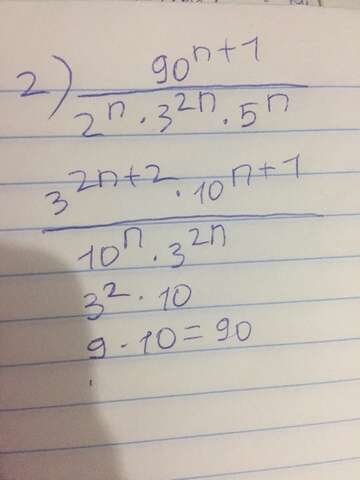 2) 90^{n+1}
2^n · 3^{2n} · 5^n
3^{2n+2} · 10^{n+1}
10^n · 3^{2n}
3^2 · 10
9 · 10 = 90